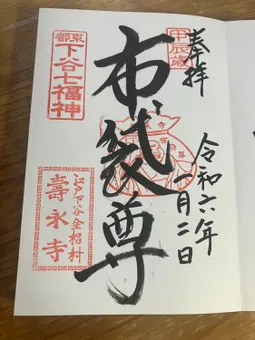 奉拝
甲辰歳
令和六年
一月二日
布袋尊
東都
下谷七福神
江戸下谷金杉村
壽永寺